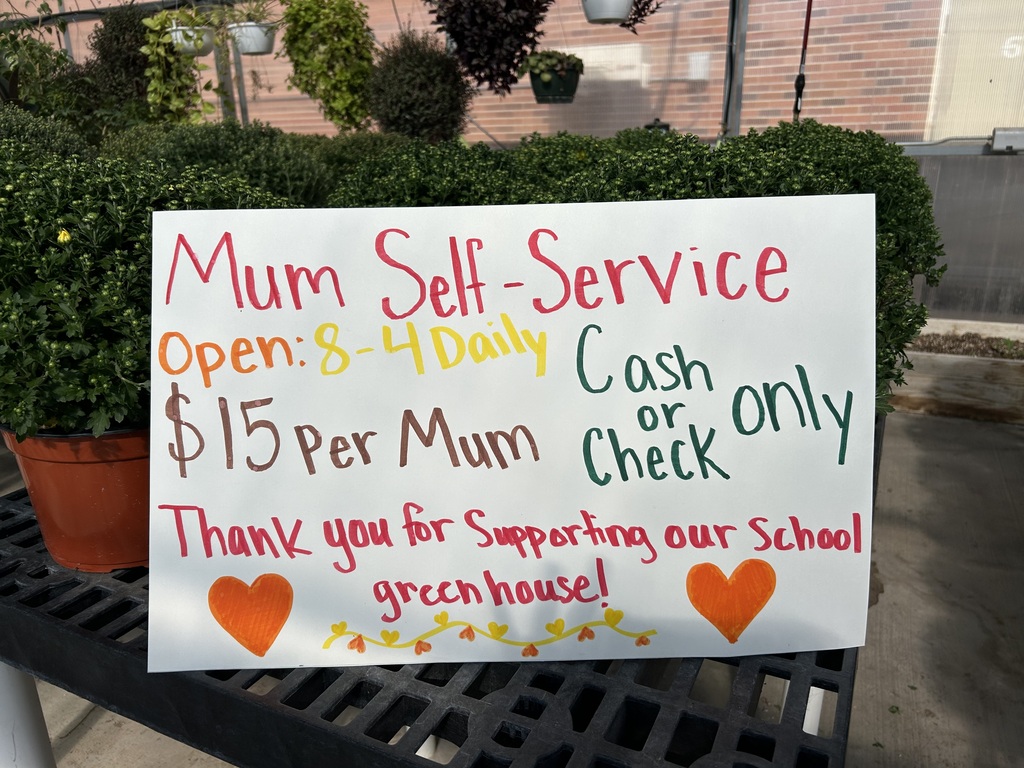 Mum Self-Service
Open: 8-4 Daily
$15 per Mum
Cash
or
Check
only
Thank you for Supporting our School
greenhouse!